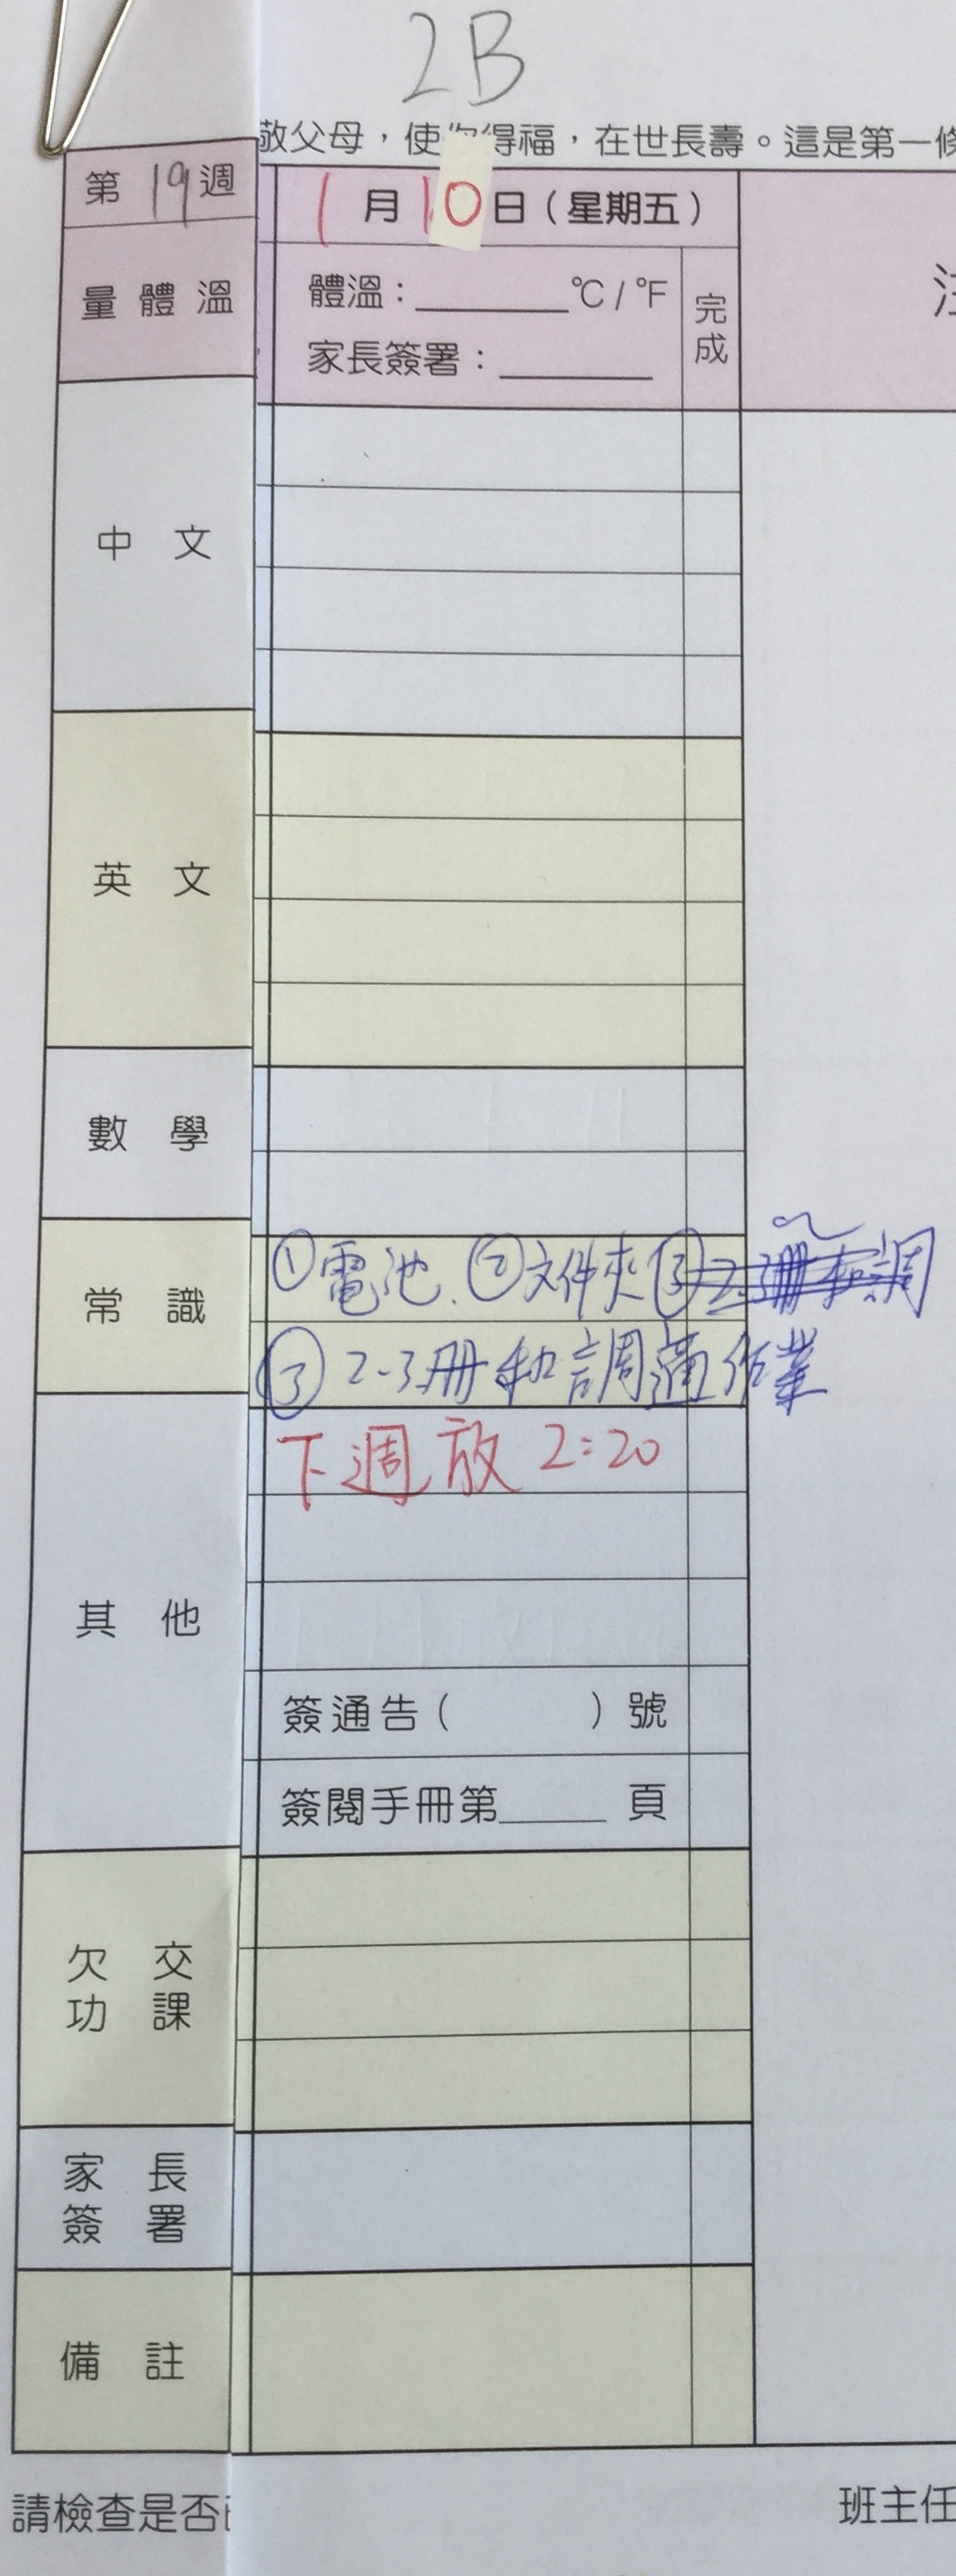 2B
敬父母，使你得福，在世長壽。這是第一條
第19週
1月10日（星期五）
量體溫
體溫：______℃/℉
完成
家長簽署：______
中文
英文
數學
常識
①電池、②文件夾③2-3冊和調
③2-3冊和調適作業
其他
下週放2:20
簽通告（　　　）號
簽閱手冊第____頁
欠交功課
家長簽署
備註
請檢查是否
班主任